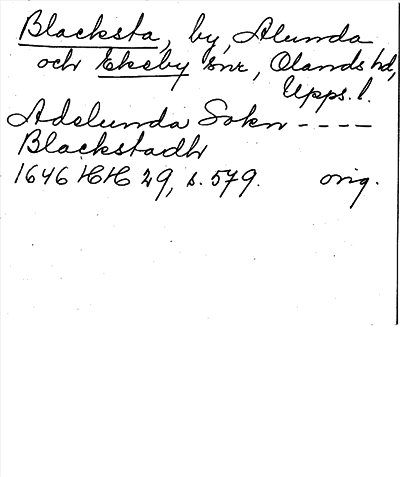 Blacksta, by, Alunda
och Ekeby snr, Olands hd,
Upps. l.
Adelunda Sokn ----
Blackstadhr
1646 HH 29, s. 579. orig.